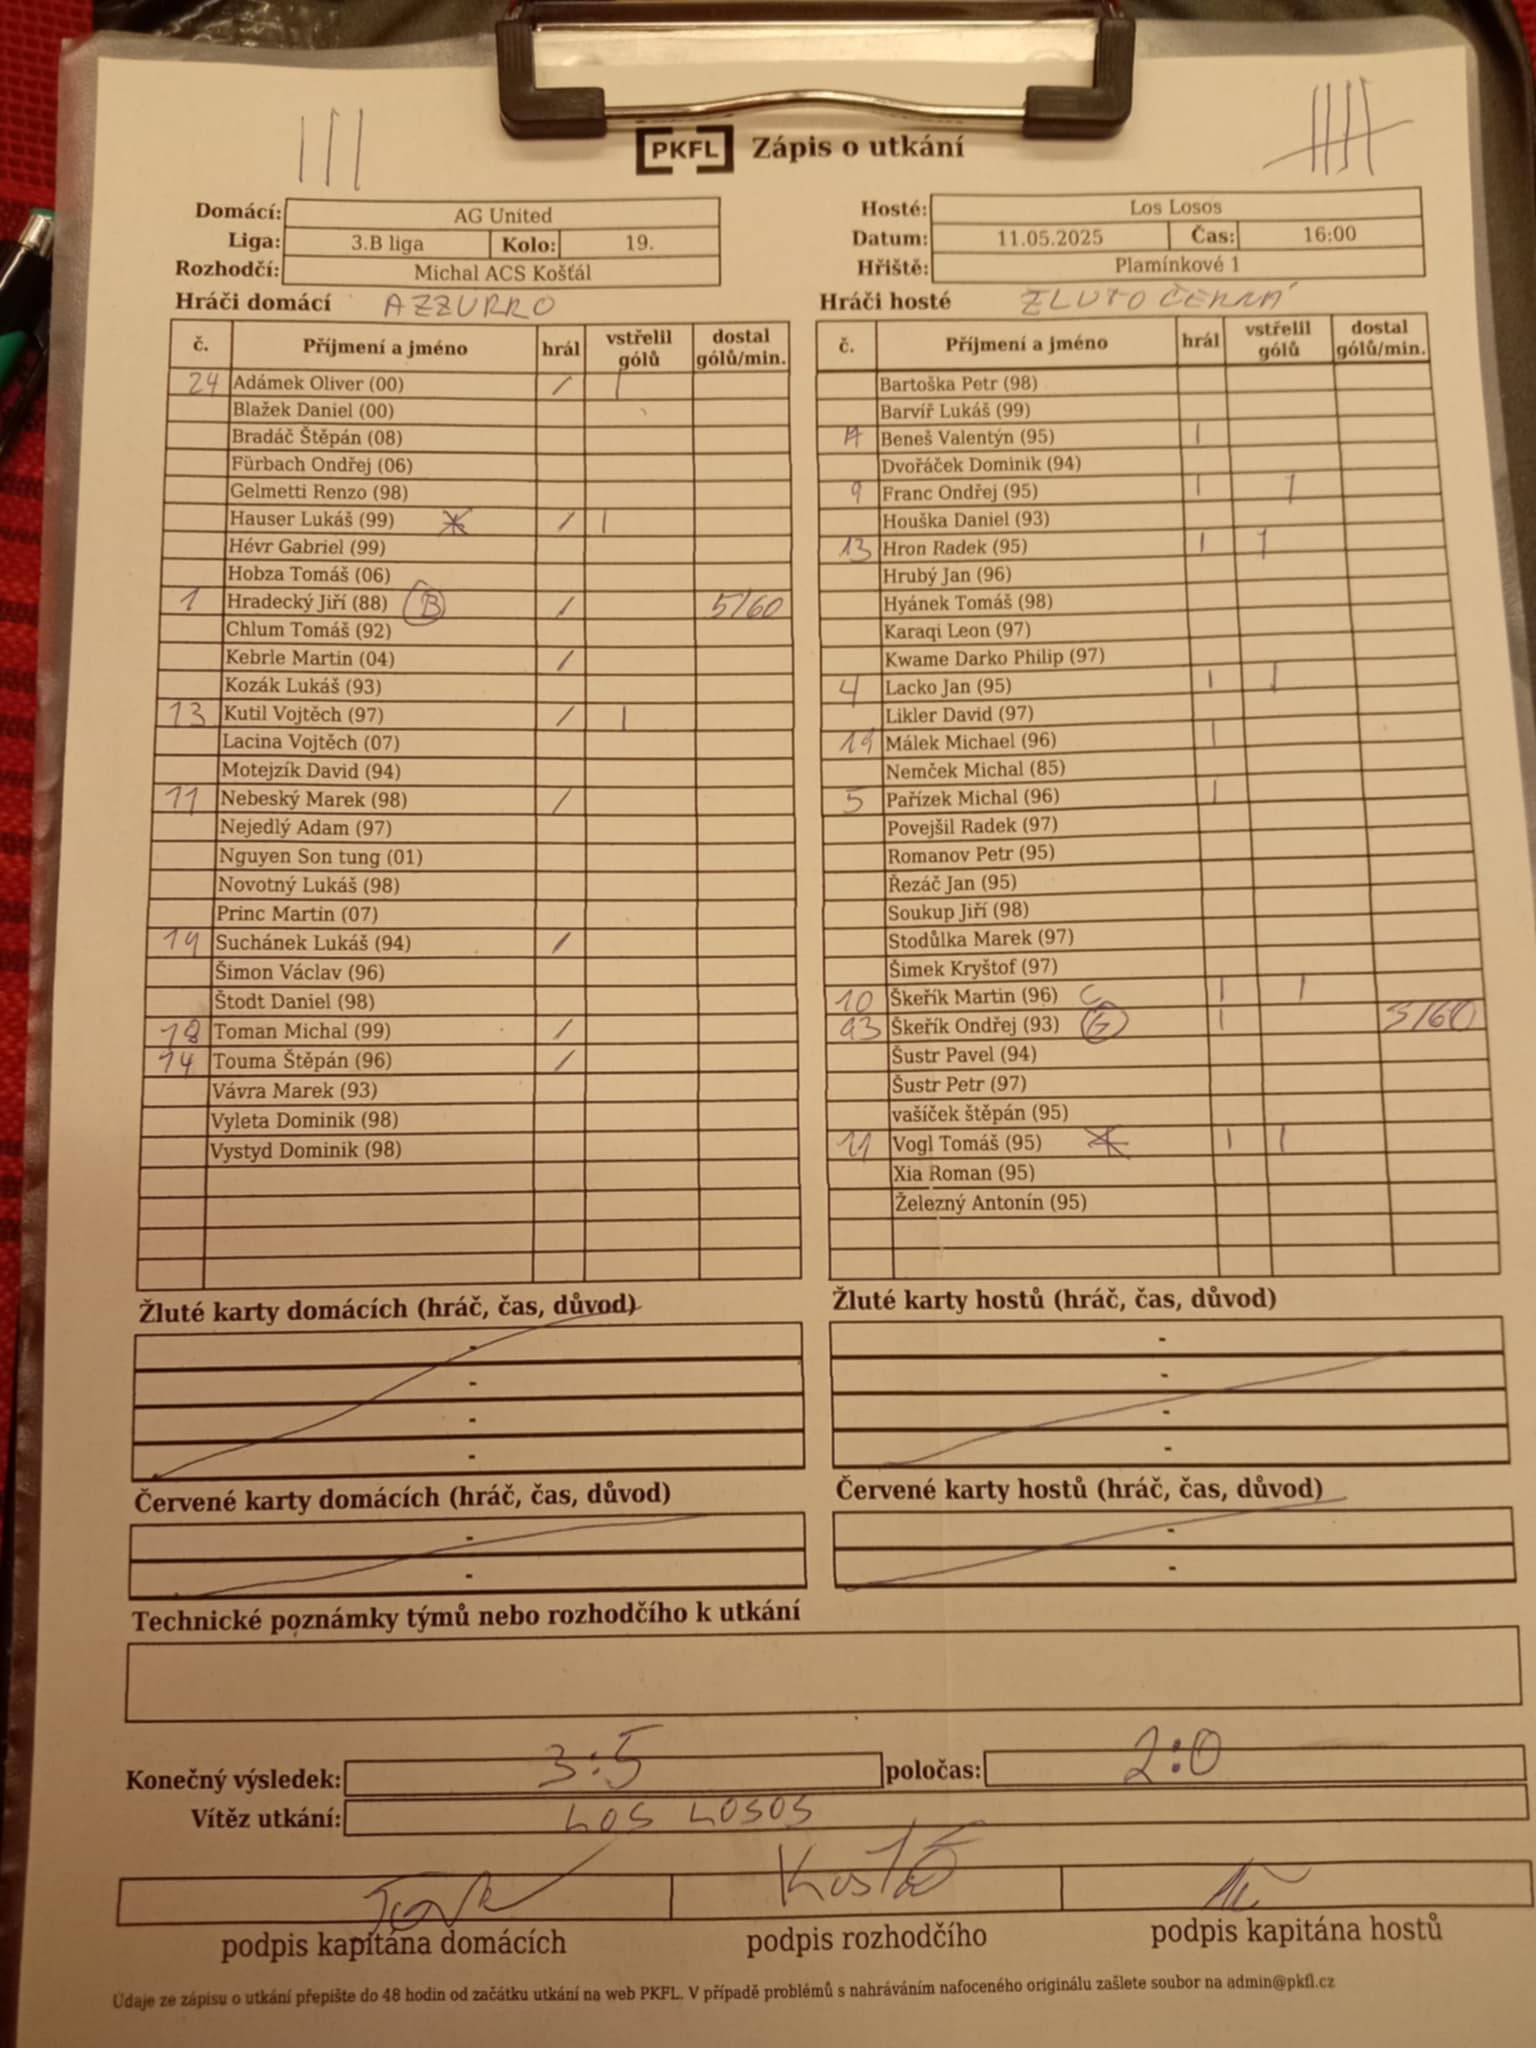 PKFL Zápis o utkání
Domácí: AG United
Liga: 3.B liga Kolo: 19.
Rozhodčí: Michal ACS Košťál
Hosté: Los Losos
Datum: 11.05.2025 Čas: 16:00
Hřiště: Plamínkové 1
Hráči domácí AZZURRO
č. Příjmení a jméno hrál vstřelil gólů dostal gólů/min.
24 Adámek Oliver (00) / |
Blažek Daniel (00)
Bradáč Štěpán (08)
Fürbach Ondřej (06)
Gelmetti Renzo (98)
Hauser Lukáš (99) * / |
Hévr Gabriel (99)
Hobza Tomáš (06)
1 Hradecký Jiří (88) B / 5/60
Chlum Tomáš (92)
Kebrle Martin (04) /
Kozák Lukáš (93)
13 Kutil Vojtěch (97) / |
Lacina Vojtěch (07)
Motejzík David (94)
11 Nebeský Marek (98) /
Nejedlý Adam (97)
Nguyen Son tung (01)
Novotný Lukáš (98)
Princ Martin (07)
19 Suchánek Lukáš (94) /
Šimon Václav (96)
Štodt Daniel (98)
18 Toman Michal (99) /
14 Touma Štěpán (96) /
Vávra Marek (93)
Vyleta Dominik (98)
Vystyd Dominik (98)
Hráči hosté ŽLUTOČERNÁ
č. Příjmení a jméno hrál vstřelil gólů dostal gólů/min.
Bartoška Petr (98)
Barvíř Lukáš (99)
Beneš Valentýn (95) |
Dvořáček Dominik (94)
9 Franc Ondřej (95) | 1
Houška Daniel (93)
13 Hron Radek (95) | 1
Hrubý Jan (96)
Hyánek Tomáš (98)
Karaqi Leon (97)
Kwame Darko Philip (97)
4 Lacko Jan (95) | |
Likler David (97)
19 Málek Michael (96) |
Nemček Michal (85)
5 Pařízek Michal (96) |
Povejšil Radek (97)
Romanov Petr (95)
Řezáč Jan (95)
Soukup Jiří (98)
Stodůlka Marek (97)
Šimek Kryštof (97)
10 Škeřík Martin (96) C | |
93 Škeřík Ondřej (93) G | 3/60
Šustr Pavel (94)
Šustr Petr (97)
vašíček štěpán (95)
Vogl Tomáš (95) * | |
Xia Roman (95)
Železný Antonín (95)
Žluté karty domácích (hráč, čas, důvod)
-
-
-
-
Žluté karty hostů (hráč, čas, důvod)
-
-
-
-
Červené karty domácích (hráč, čas, důvod)
-
-
Červené karty hostů (hráč, čas, důvod)
-
-
Technické poznámky týmů nebo rozhodčího k utkání
Konečný výsledek: 3:5 poločas: 2:0
Vítěz utkání: LOS LOSOS
podpis kapitána domácích podpis rozhodčího podpis kapitána hostů
Údaje ze zápisu o utkání přepište do 48 hodin od začátku utkání na web PKFL. V případě problémů s nahráváním nafoceného originálu zašlete soubor na admin@pkfl.cz